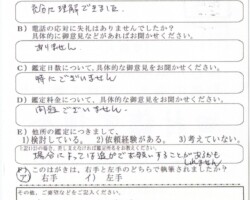 充分に理解できました。
B) 電話の応対に失礼はありませんでしたか?
具体的に御意見などがあればお聞かせください。
ありません
C) 鑑定日数について、具体的な御意見をお聞かせください。
特にございません
D) 鑑定料金について、具体的な御意見をお聞かせください。
問題ございません。
E) 他所の鑑定につきまして。
1)検討している。 2)依頼経験がある。 3)考えていない。
場合によっては
お願いすることがあるかも
しれません
F) このはがきは、右手と左手のどちらで執筆されましたか?
ア) 右手 イ) 左手
その他、ご要望などご記入ください。